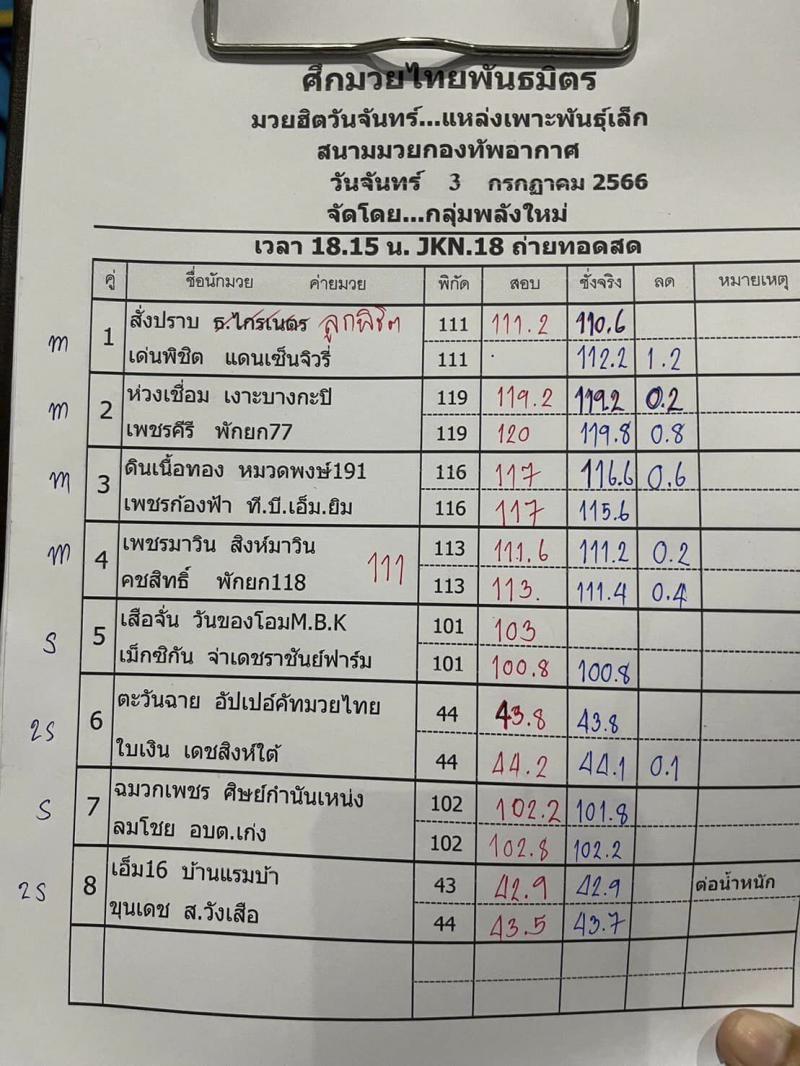 ศึกมวยไทยพันธมิตร
มวยฮิตวันจันทร์...แหล่งเพาะพันธุ์เล็ก
สนามมวยกองทัพอากาศ
วันจันทร์ 3 กรกฎาคม 2566
จัดโดย...กลุ่มพลังใหม่
เวลา 18.15 น. JKN.18 ถ่ายทอดสด
คู่ ชื่อนักมวย ค่ายมวย พิกัด สอบ ชั่งจริง ลด หมายเหตุ
m 1 สั่งปราบ ธ.ไกรเนตร ลูกพิชิต 111 111.2 110.6
เด่นพิชิต แดนเซ็นจิวรี่ 111 112.2 1.2
m 2 ห่วงเชื่อม เงาะบางกะปิ 119 119.2 119.2 0.2
เพชรคีรี พักยก77 119 120 119.8 0.8
m 3 ดินเนื้อทอง หมวดพงษ์191 116 117 116.6 0.6
เพชรก้องฟ้า ที.บี.เอ็ม.ยิม 116 117 115.6
m 4 เพชรมาวิน สิงห์มาวิน 111 113 111.6 111.2 0.2
คชสิทธิ์ พักยก118 113 113. 111.4 0.4
S 5 เสือจั่น วันของโอมM.B.K 101 103
เม็กซิกัน จ่าเดชราชันย์ฟาร์ม 101 100.8 100.8
2S 6 ตะวันฉาย อัปเปอ์คัทมวยไทย 44 43.8 43.8
ใบเงิน เดชสิงห์ใต้ 44 44.2 44.1 0.1
S 7 ฉมวกเพชร ศิษย์กำนันเหน่ง 102 102.2 101.8
ลมโชย อบต.เก่ง 102 102.8 102.2
2S 8 เอ็ม16 บ้านแรมบ้า 43 42.9 42.9 ต่อน้ำหนัก
ขุนเดช ส.วังเสือ 44 43.5 43.7